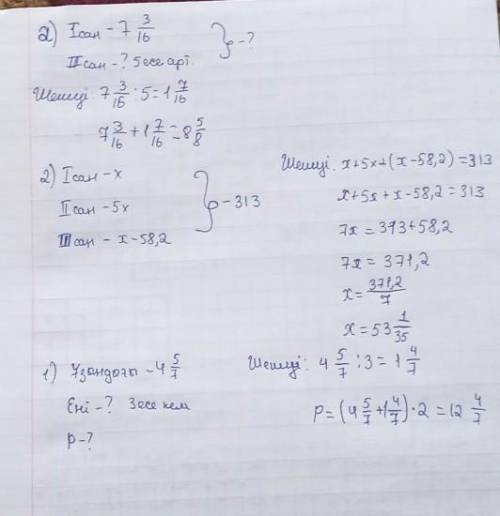 2) I сан - 7 3/16
II сан - ? 5 есе арт. } - ?
Шешуі 7 3/16 : 5 = 1 7/16
7 3/16 + 1 7/16 = 8 5/8
2) I сан - x
II сан - 5x
III сан - x - 58,2 } - 313
Шешуі. x+5x+(x-58,2)=313
x+5x+x-58,2=313
7x=313+58,2
7x=371,2
x=371,2/7
x=53 1/35
1) Ұзындығы - 4 5/7
Ені - ? 3 есе кем
P - ?
Шешуі: 4 5/7 : 3 = 1 4/7
P=(4 5/7 + 1 4/7)·2=12 4/7